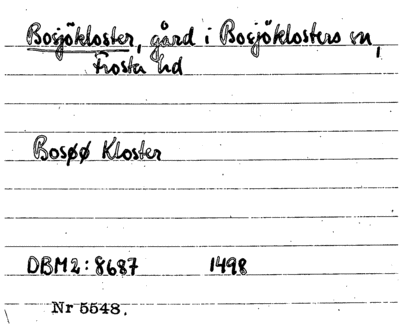 Bosjökloster, gård i Bosjöklosters sn,
Frosta hd
Bosøø Kloster
DBM2:8687 1498
Nr 5548.